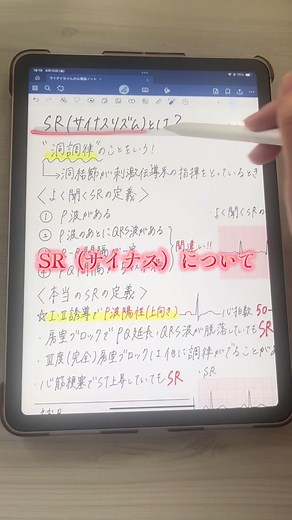 SR(サイナスリズム)とは?
"洞調律"のことをいう!
↳洞結節が刺激伝導系の指揮をとっているとき
〈よく聞くSRの定義〉
① P波がある
② P波のあとにQRS波がある
間違い!!
SR（サイナス）について
〈本当のSRの定義〉
☆I・II誘導でP波陽性(上向き)
心拍数50-
・房室ブロックでPQ延長・QRS波が脱落していてもSR
・III度(完全)房室ブロックには他に調律がでることがあ
・心筋梗塞でST上昇していてもSR
・よく聞くSRの
・SR